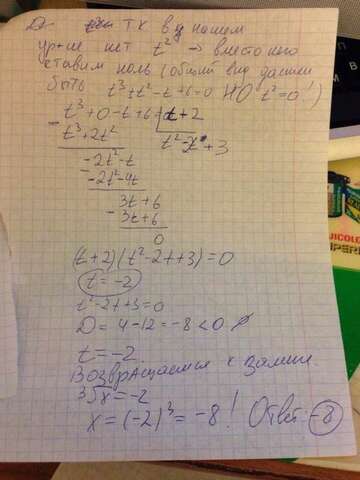 т.к в ур-ии нашем
ур+ие нет t² → вместо него
ставим ноль (общий вид должен
быть t³+t²-t+6=0 НО t²=0!)
t³+0-t+6 | t+2
t³+2t² t²-2t+3
-2t²-t
-2t²-4t
3t+6
3t+6
0
(t+2)(t²-2t+3)=0
t=-2
t²-2t+3=0
D=4-12=-8<0
t=-2
возвращаемся к замене.
³√x=-2
x=(-2)³=-8! Ответ: -8
UNICOL
UPERI